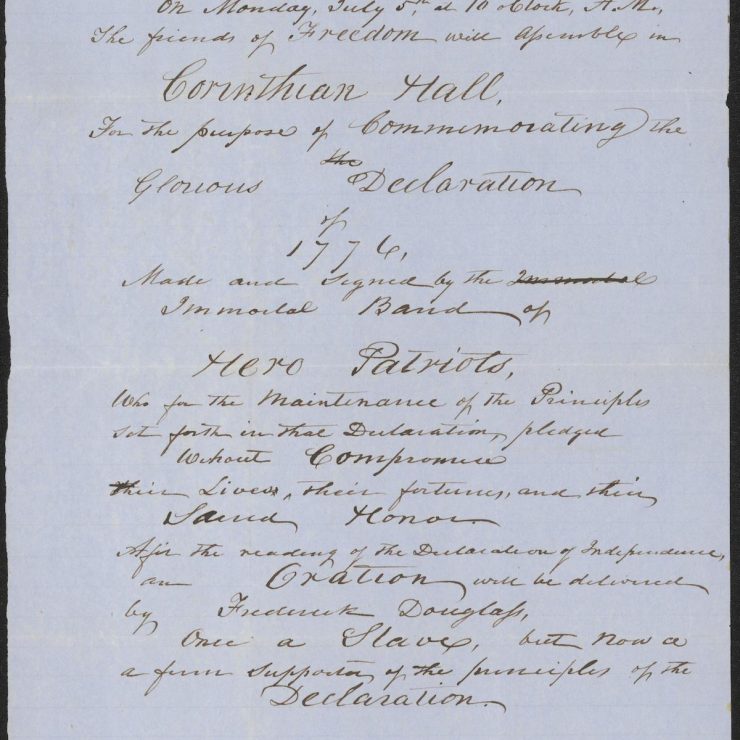 On Monday, July 5th at 10 oClock, A.M.,
The friends of Freedom will assemble in
Corinthian Hall,
For the purpose of Commemorating the
the
Glorious Declaration
of
1776,
Made and Signed by the Immortal
Immortal Band of
Hero Patriots,
Who for the Maintenance of the Principles
set forth in that Declaration, pledged
Without Compromise
their Lives, their fortunes, and their
Sacred Honor.
After the reading of the Declaration of Independence,
an Oration will be delivered
by Frederick Douglass,
Once a Slave, but now a
a firm supporter of the principles of the
Declaration.